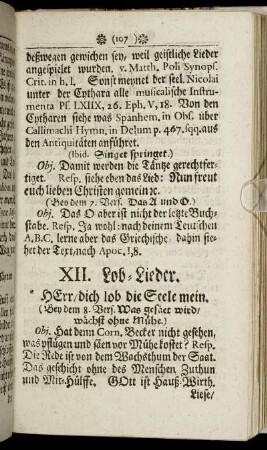 (107)
deßwegen gewichen sey, weil geistliche Lieder
angespielet wurden. v. Matth. Poli Synops.
Crit. in h. l. Sonst meynet der seel. Nicolai
unter der Cythara alle musicalische Instru-
menta Ps. LXIIX, 26. Eph. V, 18. Von den
Cytharen siehe was Spanhem, in Obs. über
Callimachi Hymn, in Delum p. 467. sqq. aus
den Antiquitäten anführet.
(Ibid. Singet springet.)
Obj. Damit werden die Täntze gerechtfer-
tiget. Resp. siehe eben das Lied: Nun freut
euch lieben Christen gemein ꝛc.
(Bey dem 7. Vers. Das A und O.)
Obj. Das O aber ist nicht der letzte Buch-
stabe. Resp. Ja wohl: nach deinem Teutschen
A, B, C, lerne aber das Griechische dahin sie-
het der Text, nach Apoc. 1, 8.
XII. Lob-Lieder.
HErr/ dich lob die Seele mein.
(Bey dem 8. Vers. Was gesäet wird/
wächst ohne Mühe.)
Obj. Hat denn Corn. Becker nicht gesehen,
was pflügen und säen vor Mühe kostet? Resp.
Die Rede ist von dem Wachsthum der Saat.
Das geschicht ohne des Menschen Zuthun
und Mit-Hülffe. GOtt ist Hauß-Wirth.
Liese/